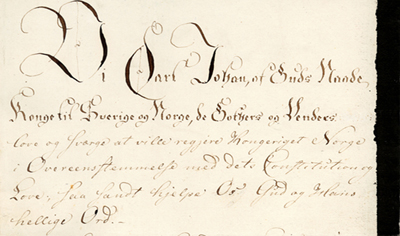 Vi Carl Johan, af Guds Naade,
Konge til Sverige og Norge, de Gothers og Venders
love og sværge at ville regjere Kongeriget Norge
i Overeensstemmelse med dets Constitution og
Love; saa sandt hjelpe Os Gud og Hans
hellige Ord.-